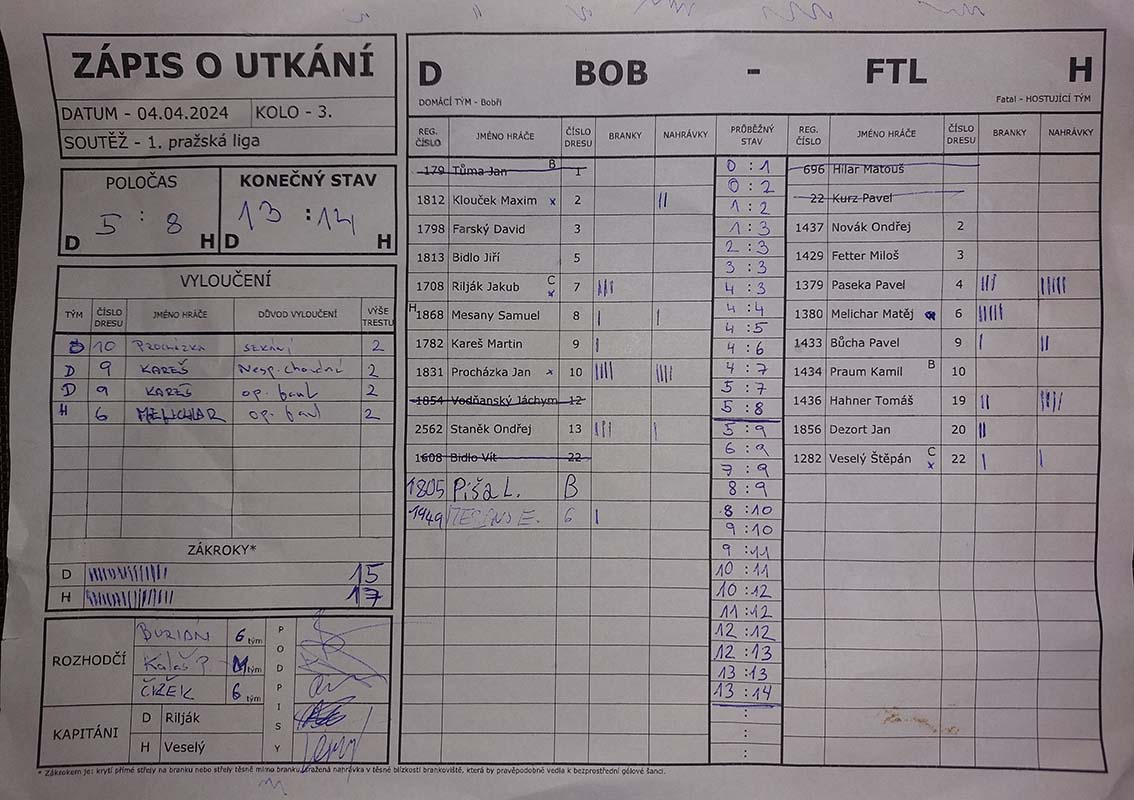 ZÁPIS O UTKÁNÍ
DATUM - 04.04.2024 KOLO - 3.
SOUTĚŽ - 1. pražská liga
POLOČAS KONEČNÝ STAV
5 : 8 13 : 14
D H D H
VYLOUČENÍ
TÝM ČÍSLO DRESU JMÉNO HRÁČE DŮVOD VYLOUČENÍ VÝŠE TRESTU
D 10 PROCHÁZKA SEKÁNÍ 2
D 9 KAREŠ Nesp. chování 2
D 9 KAREŠ op. faul 2
H 6 MELICHAR op. faul 2
ZÁKROKY*
D 15
H 17
ROZHODČÍ
BURIAN 6 tým
Kalaš P. tým
ČÍŽEK 6 tým
PODPISY
KAPITÁNI
D Rilják
H Veselý
D BOB - FTL H
DOMÁCÍ TÝM - Bobři Fatal - HOSTUJÍCÍ TÝM
REG. ČÍSLO JMÉNO HRÁČE ČÍSLO DRESU BRANKY NAHRÁVKY PRŮBĚŽNÝ STAV REG. ČÍSLO JMÉNO HRÁČE ČÍSLO DRESU BRANKY NAHRÁVKY
179 Tůma Jan B 1
1812 Klouček Maxim x 2 ||
1798 Farský David 3
1813 Bidlo Jiří 5
1708 Rilják Jakub C x 7
H 1868 Mesany Samuel 8 | |
1782 Kareš Martin 9 |
1831 Procházka Jan x 10
1854 Vodňanský Jáchym 12
2562 Staněk Ondřej 13 ||| |
1608 Bidlo Vít 22
1805 Píša L. B
1949 E. 6 |
0 : 1
0 : 2
1 : 2
1 : 3
2 : 3
3 : 3
4 : 3
4 : 4
4 : 5
4 : 6
4 : 7
5 : 7
5 : 8
5 : 9
6 : 9
7 : 9
8 : 9
8 : 10
9 : 10
9 : 11
10 : 11
10 : 12
11 : 12
12 : 12
12 : 13
13 : 13
13 : 14
:
:
:
696 Hilar Matouš
22 Kurz Pavel
1437 Novák Ondřej 2
1429 Fetter Miloš 3
1379 Paseka Pavel 4
1380 Melichar Matěj 6
1433 Bůcha Pavel 9 | ||
1434 Praum Kamil B 10
1436 Hahner Tomáš 19
1856 Dezort Jan 20 ||
1282 Veselý Štěpán C x 22 | |
* Zákrokem je: krytí přímé střely na branku nebo střely těsně mimo branku, zražená nahrávka v těsné blízkosti brankoviště, která by pravěpodobně vedla k bezprostřední gólové šanci.